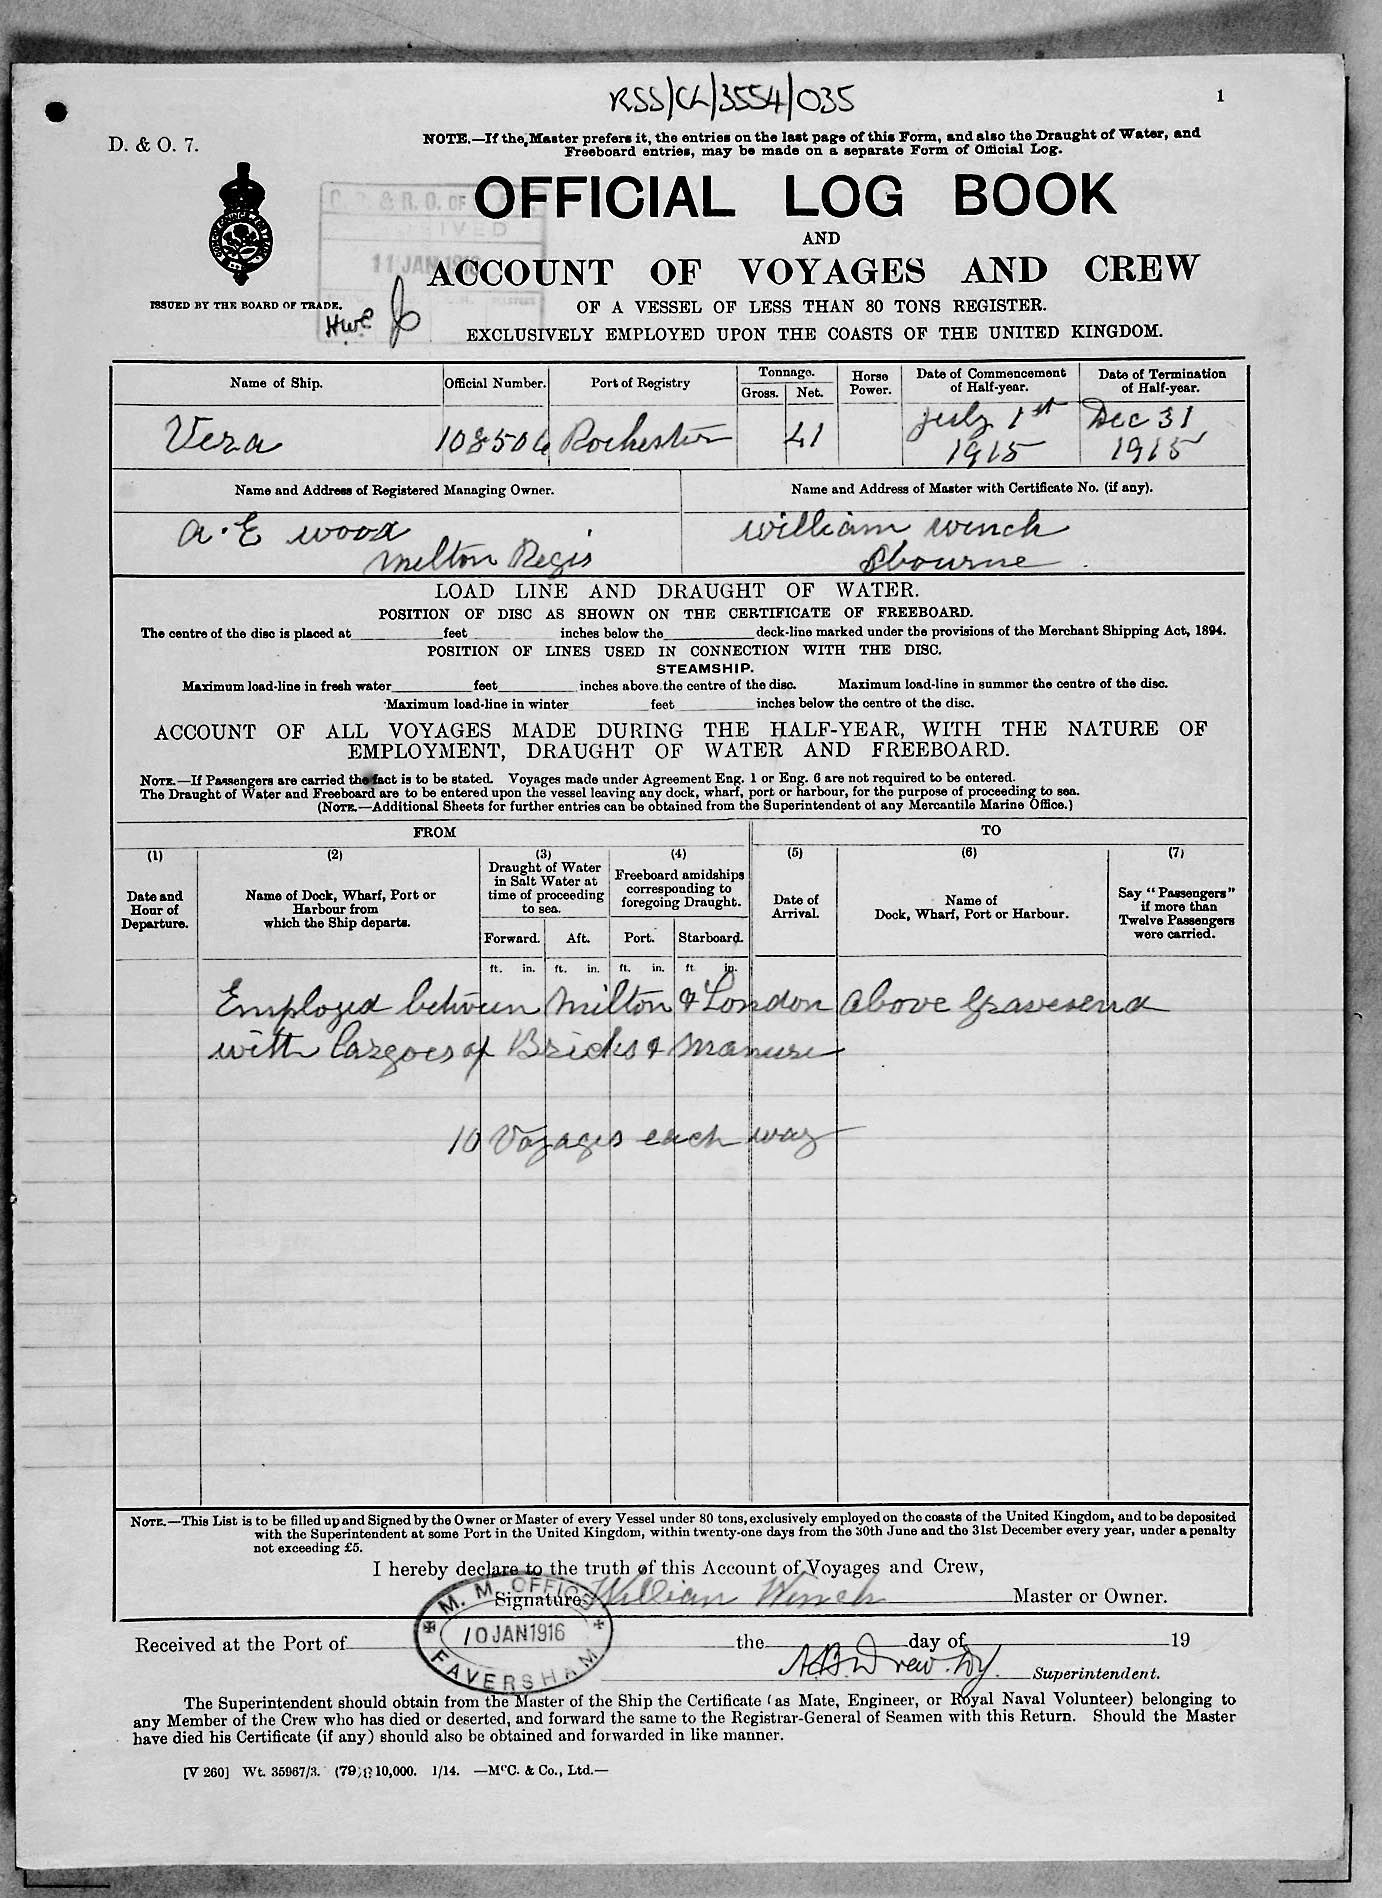 RSS/CL/3554/035
1
D. & O. 7.
NOTE.—If the Master prefers it, the entries on the last page of this Form, and also the Draught of Water, and
Freeboard entries, may be made on a separate Form of Official Log.
OFFICIAL LOG BOOK
AND
ACCOUNT OF VOYAGES AND CREW
OF A VESSEL OF LESS THAN 80 TONS REGISTER.
EXCLUSIVELY EMPLOYED UPON THE COASTS OF THE UNITED KINGDOM.
11 JAN 1916
ISSUED BY THE BOARD OF TRADE.
Name of Ship. Official Number. Port of Registry Tonnage. Gross. Net. Horse Power. Date of Commencement of Half-year. Date of Termination of Half-year.
Vera 108506 Rochester 41 July 1st 1915 Dec 31 1915
Name and Address of Registered Managing Owner. Name and Address of Master with Certificate No. (if any).
A. E Wood William Winch
Milton Regis Sbourne
LOAD LINE AND DRAUGHT OF WATER.
POSITION OF DISC AS SHOWN ON THE CERTIFICATE OF FREEBOARD.
The centre of the disc is placed at feet inches below the deck-line marked under the provisions of the Merchant Shipping Act, 1894.
POSITION OF LINES USED IN CONNECTION WITH THE DISC.
STEAMSHIP.
Maximum load-line in fresh water feet inches above the centre of the disc. Maximum load-line in summer the centre of the disc.
Maximum load-line in winter feet inches below the centre of the disc.
ACCOUNT OF ALL VOYAGES MADE DURING THE HALF-YEAR, WITH THE NATURE OF
EMPLOYMENT, DRAUGHT OF WATER AND FREEBOARD.
NOTE.—If Passengers are carried the fact is to be stated. Voyages made under Agreement Eng. 1 or Eng. 6 are not required to be entered.
The Draught of Water and Freeboard are to be entered upon the vessel leaving any dock, wharf, port or harbour, for the purpose of proceeding to sea.
(NOTE.—Additional Sheets for further entries can be obtained from the Superintendent of any Mercantile Marine Office.)
FROM TO
(1) (2) (3) (4) (5) (6) (7)
Date and Hour of Departure. Name of Dock, Wharf, Port or Harbour from which the Ship departs. Draught of Water in Salt Water at time of proceeding to sea. Freeboard amidships corresponding to foregoing Draught. Date of Arrival. Name of Dock, Wharf, Port or Harbour. Say "Passengers" if more than Twelve Passengers were carried.
Forward. Aft. Port. Starboard.
ft. in. ft. in. ft. in. ft in.
Employed between Milton & London above Gravesend
with Cargoes of Bricks & Manure
10 Voyages each way
NOTE.—This List is to be filled up and Signed by the Owner or Master of every Vessel under 80 tons, exclusively employed on the coasts of the United Kingdom, and to be deposited
with the Superintendent at some Port in the United Kingdom, within twenty-one days from the 30th June and the 31st December every year, under a penalty
not exceeding £5.
I hereby declare to the truth of this Account of Voyages and Crew,
Signature William Winch Master or Owner.
M. M. OFFICE
10 JAN 1916
FAVERSHAM
Received at the Port of the day of 19
Superintendent.
The Superintendent should obtain from the Master of the Ship the Certificate (as Mate, Engineer, or Royal Naval Volunteer) belonging to
any Member of the Crew who has died or deserted, and forward the same to the Registrar-General of Seamen with this Return. Should the Master
have died his Certificate (if any) should also be obtained and forwarded in like manner.
[V 260] Wt. 35967/3. (79) 10,000. 1/14. —McC. & Co., Ltd.—